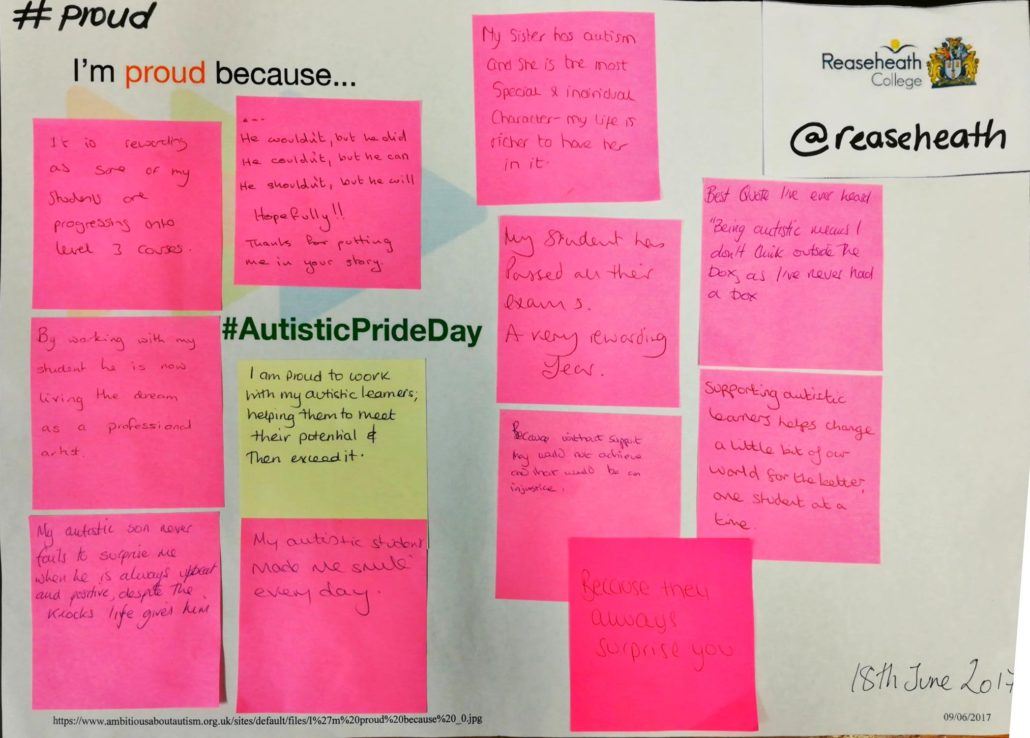 #proud
I'm proud because...
Reaseheath
College
@reaseheath
It is rewarding
as some of my
students are
progressing onto
level 3 courses.
....
He wouldn't, but he did
He couldn't, but he can
He shouldn't, but he will
Hopefully!!
Thanks for putting
me in your story.
My Sister has autism
and she is the most
Special & individual
Character - my life is
richer to have her
in it.
Best Quote I've ever heard
"Being autistic means I
don't think outside the
box, as I've never had
a box
My Student has
Passed all their
exams.
A very rewarding
Year.
#AutisticPrideDay
By working with my
student he is now
living the dream
as a professional
artist.
I am proud to work
with my autistic learners;
helping them to meet
their potential &
Then exceed it.
Because without support
they would not achieve
and that would be an
injustice.
Supporting autistic
learners helps change
a little bit of our
world for the better,
one student at a
time.
My autistic son never
fails to surprise me
when he is always upbeat
and positive, despite the
knocks life gives him
My autistic student
made me smile
every day.
Because they
always
surprise you
18th June 2017
https://www.ambitiousaboutautism.org.uk/sites/default/files/I%27m%20proud%20because%20_0.jpg
09/06/2017